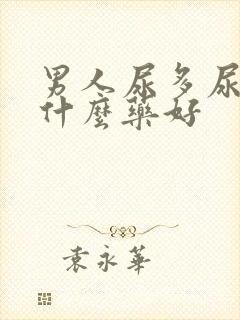 男人尿多尿
什麼藥好
袁永華